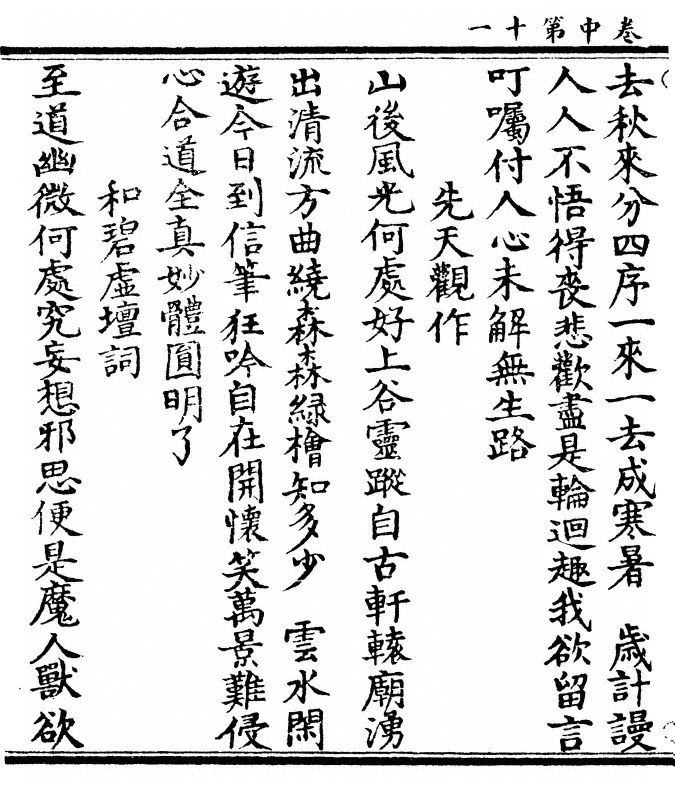 卷中第十一
去秋來分四序一來一去成寒暑　歲計謾
人人不悟得喪悲歡盡是輪迴趣我欲留言
叮囑付人心未解無生路
先天觀作
山後風光何處好上谷靈蹤自古軒轅廟湧
出清流方曲繞森森綠檜知多少　雲水閑
遊今日到信筆狂吟自在開懷笑萬景難侵
心合道全真妙體圓明了
和碧虛壇詞
至道幽微何處究妄想邪思便是魔人獸欲